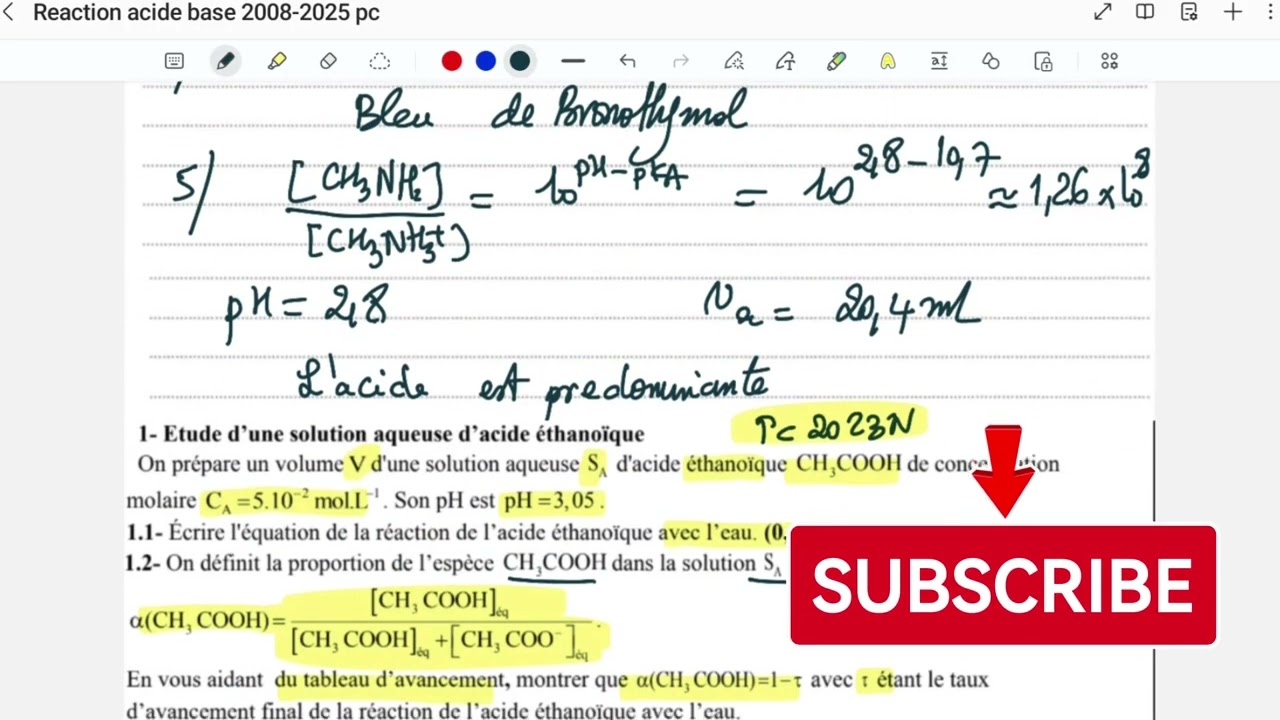 Reaction acide base 2008-2025 pc
Bleu de Bromothymol
5/ [CH₃NH₂] / [CH₃NH₃⁺] = 10^(pH-pKA) = 10^(2,8-10,7) ≈ 1,26 × 10^8
pH = 2,8 Va = 20,4 mL
L'acide est predominante
PC 2023N
1- Etude d'une solution aqueuse d'acide éthanoïque
On prépare un volume V d'une solution aqueuse S_A d'acide éthanoïque CH₃COOH de
molaire C_A = 5.10⁻² mol.L⁻¹. Son pH est pH = 3,05.
1.1- Écrire l'équation de la réaction de l'acide éthanoïque avec l'eau. (0,
1.2- On définit la proportion de l'espèce CH₃COOH dans la solution S_A
SUBSCRIBE
α(CH₃COOH) = [CH₃COOH]éq / [CH₃COOH]éq + [CH₃COO⁻]éq .
En vous aidant du tableau d'avancement, montrer que α(CH₃COOH)=1-τ avec τ étant le taux
d'avancement final de la réaction de l'acide éthanoïque avec l'eau.